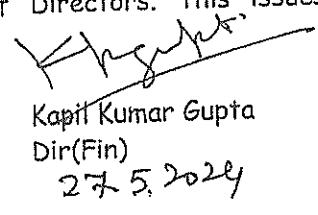 Directors. This issues
Kapil Kumar Gupta
Dir(Fin)
27.5.2024